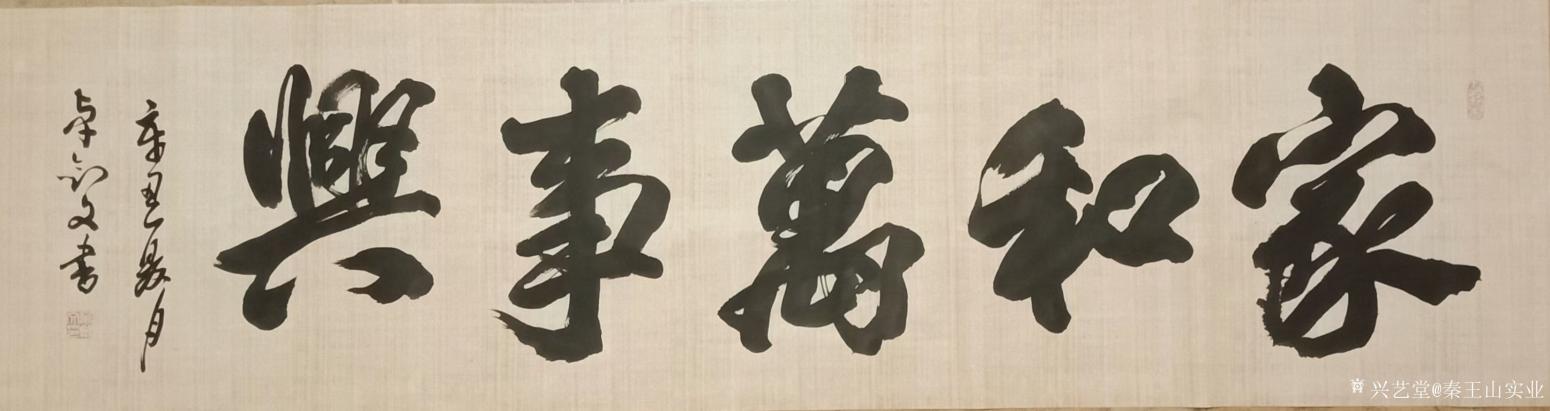 家和萬事興
辛丑夏月
卓剑文書
兴艺堂@秦王山实业